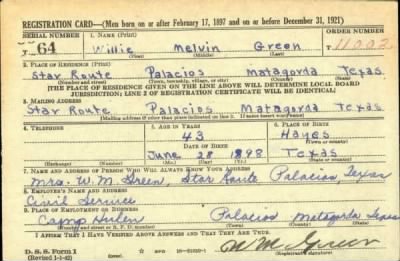 REGISTRATION CARD—(Men born on or after February 17, 1897 and on or before December 31, 1921)
SERIAL NUMBER 1. NAME (Print) ORDER NUMBER
64 Willie Melvin Green 11002
(First) (Middle) (Last)
2. PLACE OF RESIDENCE (Print)
Star Route Palacios Matagorda Texas
(Number and street) (Town, township, village, or city) (County) (State)
[THE PLACE OF RESIDENCE GIVEN ON THE LINE ABOVE WILL DETERMINE LOCAL BOARD
JURISDICTION; LINE 2 OF REGISTRATION CERTIFICATE WILL BE IDENTICAL]
3. MAILING ADDRESS
Star Route Palacios Matagorda Texas
[Mailing address if other than place indicated on line 2. If same insert word same]
4. TELEPHONE 5. AGE IN YEARS 6. PLACE OF BIRTH
43 Hayes
DATE OF BIRTH (Town or county)
June 28 1898 Texas
(Exchange) (Number) (Mo.) (Day) (Yr.) (State or country)
7. NAME AND ADDRESS OF PERSON WHO WILL ALWAYS KNOW YOUR ADDRESS
Mrs. W. M. Green, Star Route Palacios Texas
8. EMPLOYER'S NAME AND ADDRESS
Civil Service
9. PLACE OF EMPLOYMENT OR BUSINESS
Camp Hulen Palacios Matagorda Texas
(Number and street or R. F. D. number) (Town) (County) (State)
I AFFIRM THAT I HAVE VERIFIED ABOVE ANSWERS AND THAT THEY ARE TRUE.
D. S. S. Form 1
(Revised 1-1-42) (over) W M Green